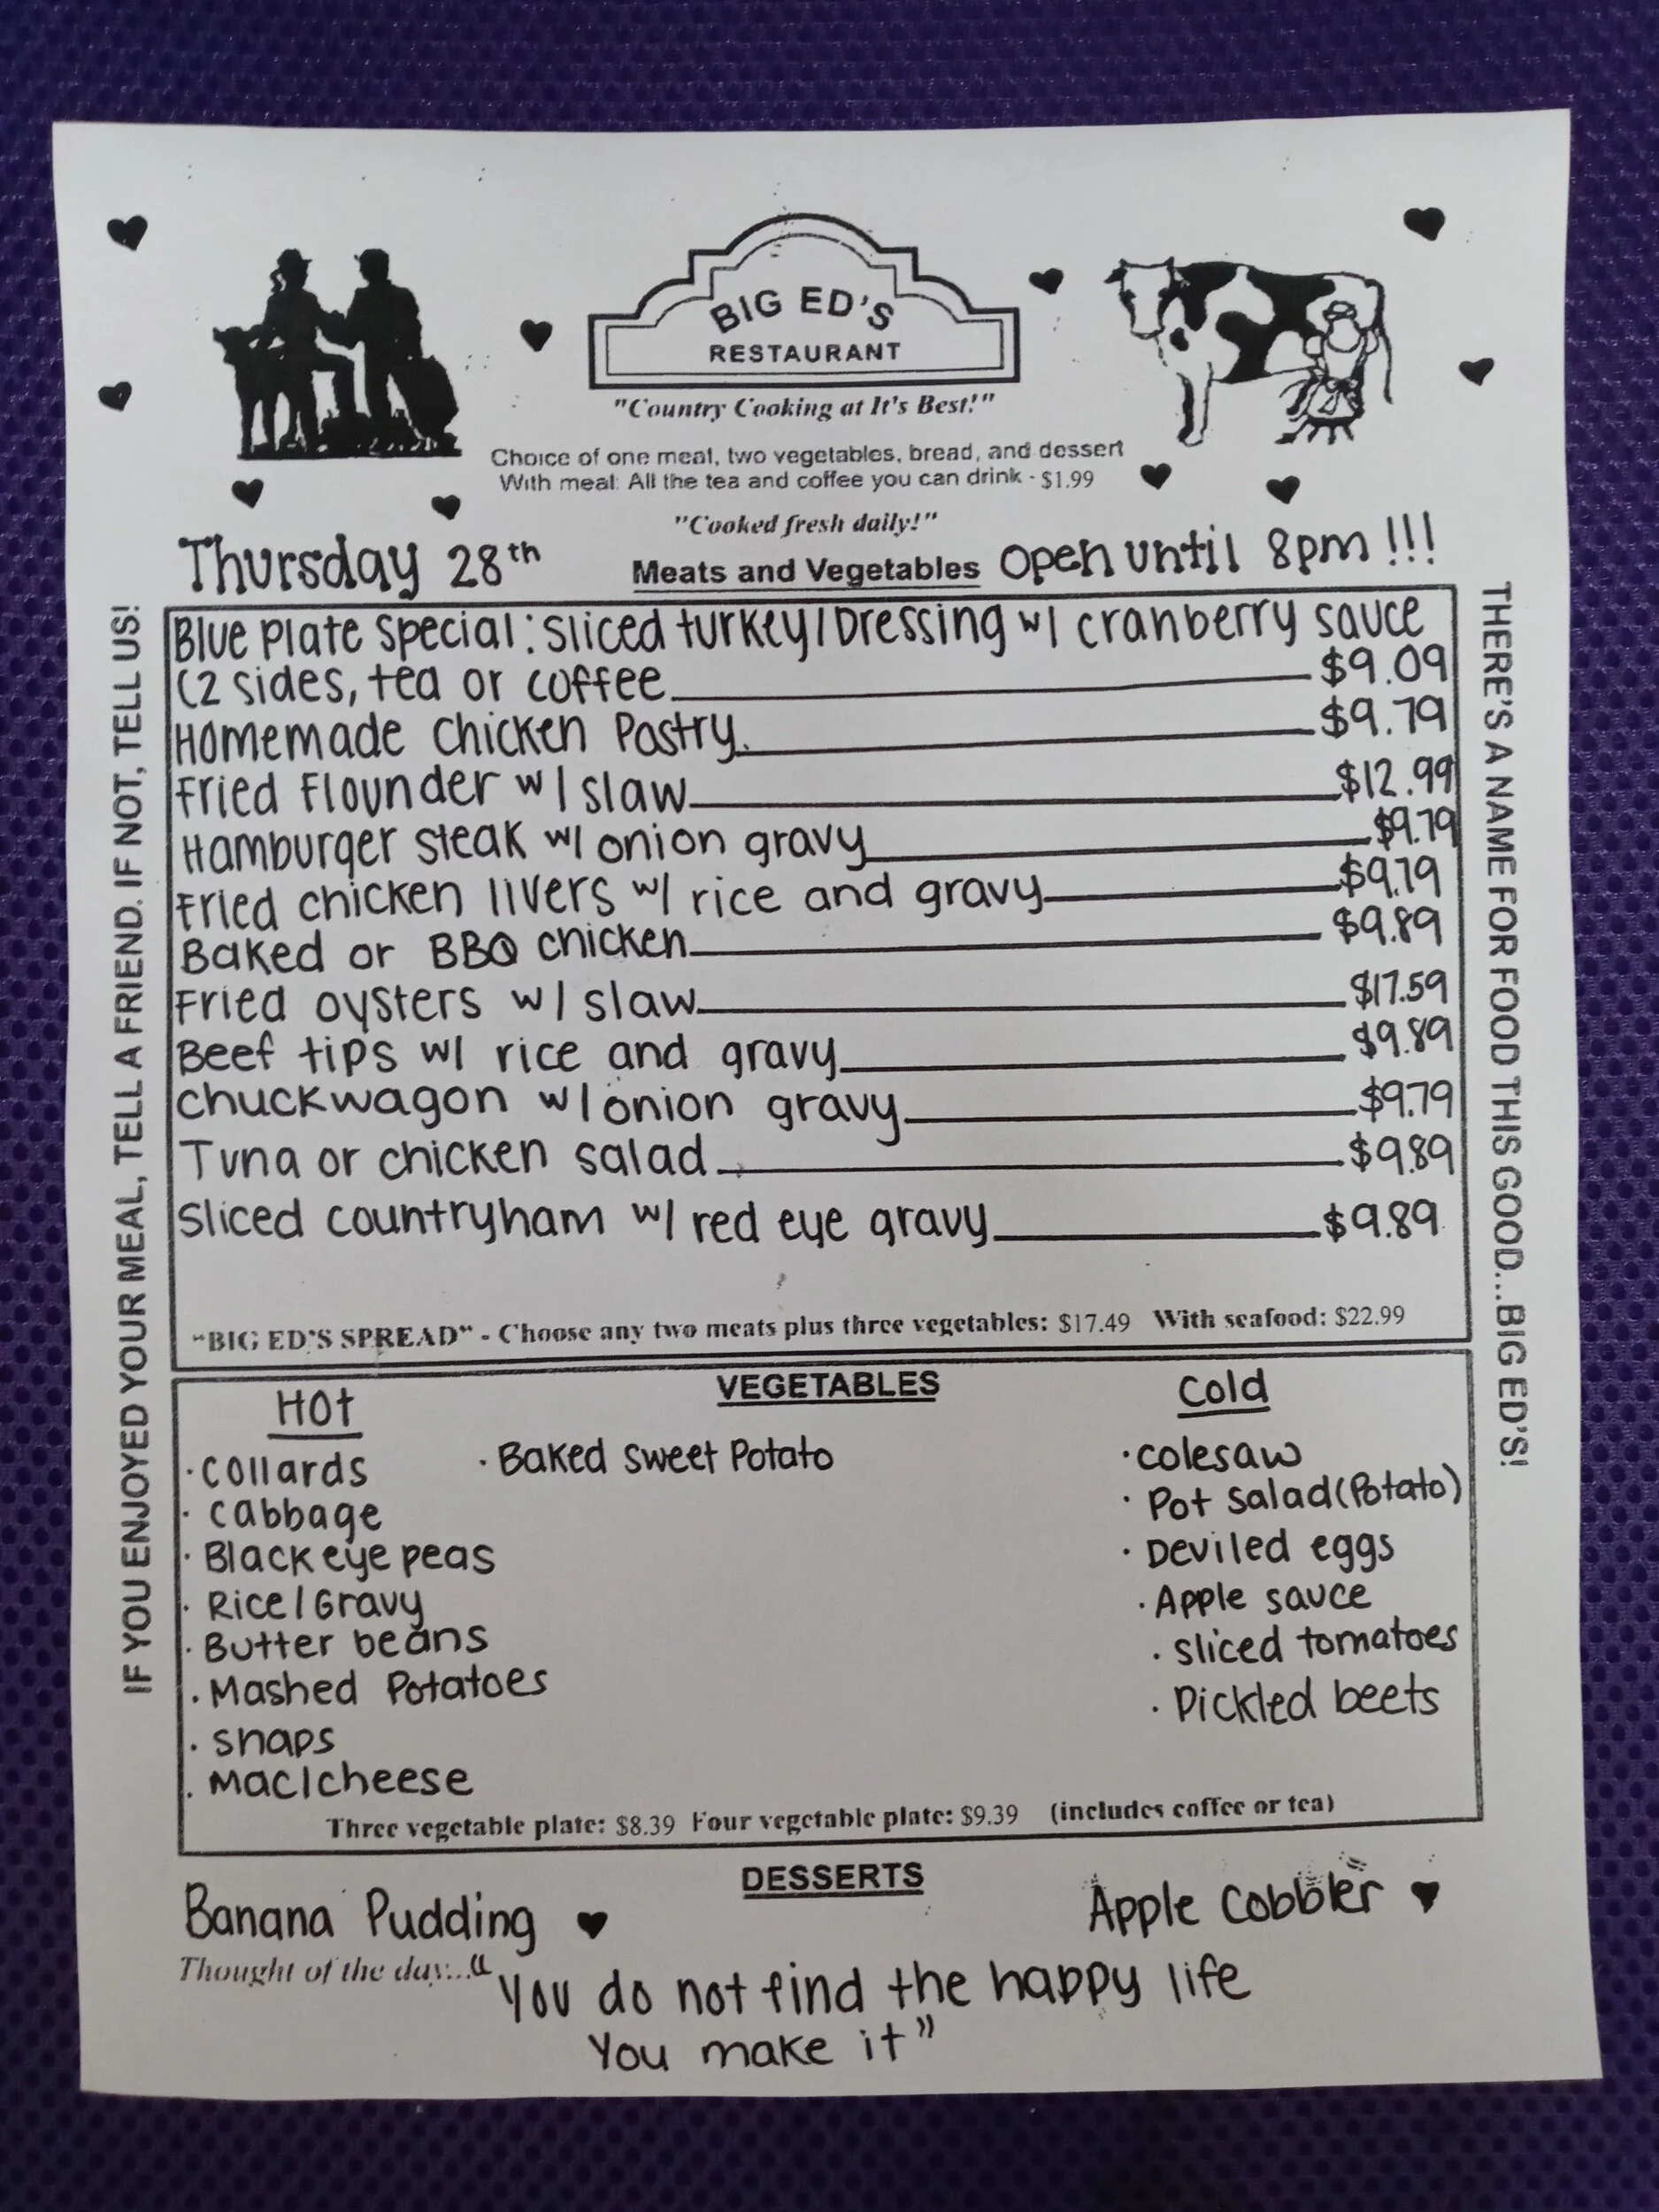 BIG ED'S
RESTAURANT
"Country Cooking at It's Best!"
Choice of one meat, two vegetables, bread, and dessert
With meal: All the tea and coffee you can drink - $1.99
"Cooked fresh daily!"
Thursday 28th
Meats and Vegetables
Open until 8pm!!!
IF YOU ENJOYED YOUR MEAL, TELL A FRIEND. IF NOT, TELL US!
Blue Plate Special: Sliced turkey/Dressing w/ cranberry sauce
(2 sides, tea or coffee $9.09
Homemade chicken Pastry. $9.79
Fried Flounder w/ slaw $12.99
Hamburger steak w/ onion gravy $9.79
Fried chicken livers w/ rice and gravy $9.79
Baked or BBQ chicken $9.89
Fried oysters w/ slaw $17.59
Beef tips w/ rice and gravy $9.89
chuckwagon w/ onion gravy $9.79
Tuna or chicken salad $9.89
Sliced countryham w/ red eye gravy $9.89
"BIG ED'S SPREAD" - Choose any two meats plus three vegetables: $17.49 With seafood: $22.99
THERE'S A NAME FOR FOOD THIS GOOD...BIG ED'S!
VEGETABLES
Hot
· Collards
· Cabbage
· Black eye peas
· Rice/Gravy
· Butter beans
· Mashed Potatoes
· snaps
· Mac/cheese
· Baked Sweet Potato
Cold
· Colesaw
· Pot Salad (Potato)
· Deviled eggs
· Apple sauce
· sliced tomatoes
· Pickled beets
Three vegetable plate: $8.39 Four vegetable plate: $9.39 (includes coffee or tea)
DESSERTS
Banana Pudding ♥
Apple Cobbler ♥
Thought of the day..." You do not find the happy life
You make it"